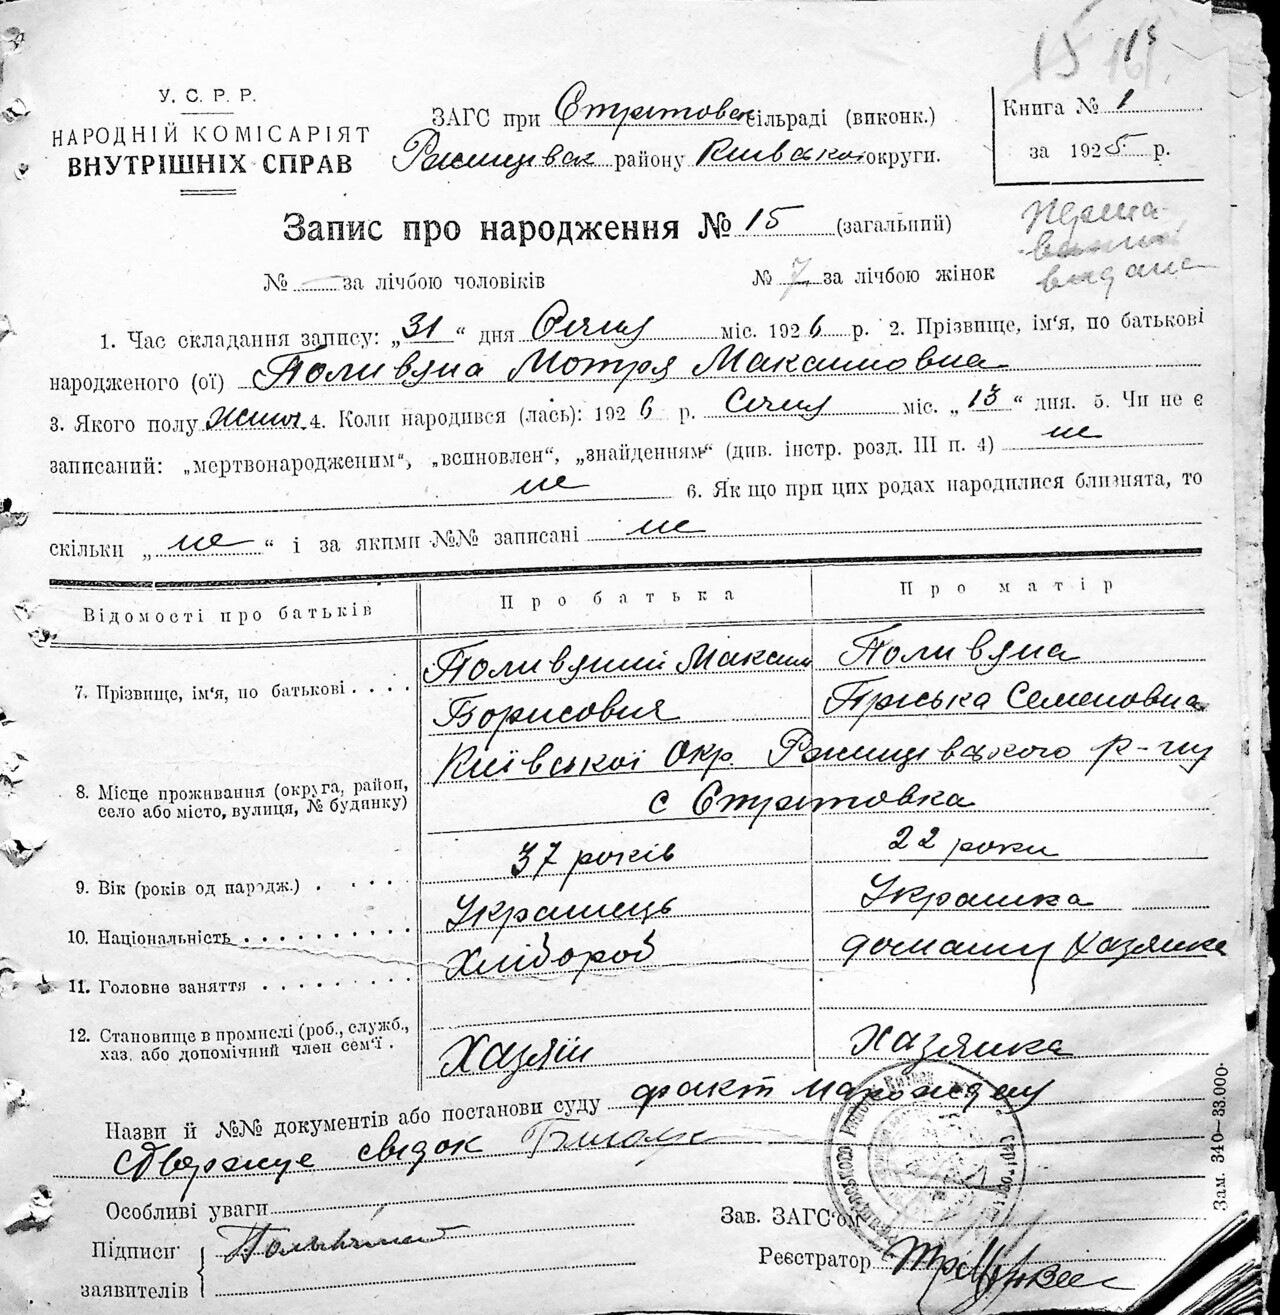 15 16
У. С. Р. Р.
НАРОДНІЙ КОМІСАРІЯТ
ВНУТРІШНІХ СПРАВ
ЗАГС при Стритовск сільраді (виконк.)
Ржищевск району Київської округи.
Книга № 1
за 1925 р.
Запис про народження № 15 (загальний)
№ — за лічбою чоловіків № 7 за лічбою жінок
видане
1. Час складання запису: „31“ дня Січня міс. 1926 р. 2. Прізвище, ім'я, по батькові
народженого (ої) Поливяна Мотря Максимовна
3. Якого полу Жіноч 4. Коли народився (лась): 1926 р. Січня міс. „13“ дня. 5. Чи не є
записаний: „мертвонародженим“, „всиновлен“, „знайденням“ (див. інстр. розд. III п. 4) не
не 6. Як що при цих родах народилися близнята, то
скільки „не“ і за якими №№ записані не
Відомості про батьків Про батька Про матір
7. Прізвище, ім'я, по батькові . . . . Поливяний Максим Борисовия Поливяна Пріська Семеновна
8. Місце проживання (округа, район, село або місто, вулиця, № будинку) Київської Окр. Ржищівського р-ну
с Стритовка
9. Вік (років од народж.) . . . . . 37 років 22 роки
10. Національність . . . . . . . . . . Українець Українка
11. Головне заняття . . . . . . . . Хлібороб домашня хазяйка
12. Становище в промислі (роб., служб., хаз. або допомічний член сем'ї . Хазяїн Хазяйка
Назви й №№ документів або постанови суду факт народження
ствержує свідок
Особливі уваги
Зав. ЗАГС'ом
Підписи заявителів Поливяний
Реєстратор
Зам. 340—33.000.